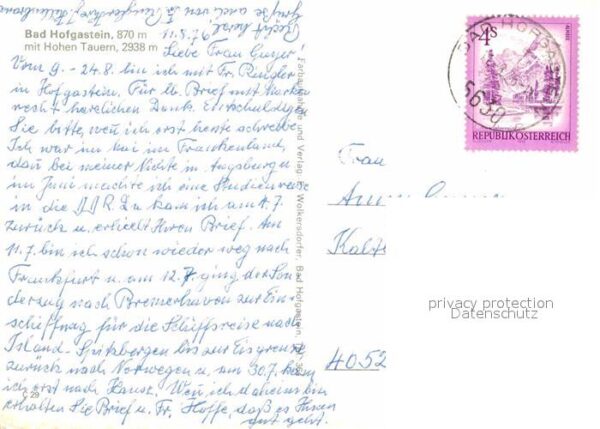 Bad Hofgastein, 870 m
mit Hohen Tauern, 2938 m
11.8.79
Liebe Frau
Vom 9.-24.8. bin ich mit Fr. Ringler
in Hofgastein. Für lb. Brief mit Marken
recht herzlichen Dank. Entschuldigen
Sie bitte, weil ich erst heute schreibe.
Ich war im Mai im Frankenland,
dan bei meiner Nichte in Augsburg
im Juni machte ich eine Studienreise
in die DDR. Zu kam ich am 4.7.
zurück u. erhielt Ihren Brief. Am
11.7. bin ich schon wieder weg nach
Frankfurt u. am 12.7. ging der Son-
derzug nach Bremerhaven zur Ein-
schiffung für die Schiffsreise nach
Island-Spitzbergen bis zur Eisgrenze
zurück nach Norwegen u. am 30.7. kam
ich erst nach Hause. Weil ich daheim bin
erhalten Sie Brief u. Fr. Hoffe, daß es Ihnen
gut geht.
Farbaufnahme und Verlag: Wolkersdorfer, Bad Hofgastein
C 29
4 S
BAD HOFGASTEIN
5630
REPUBLIK ÖSTERREICH
Frau
4052
privacy protection
Datenschutz